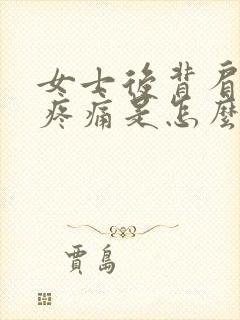 女士後背肩
疼痛是怎麼
賈島